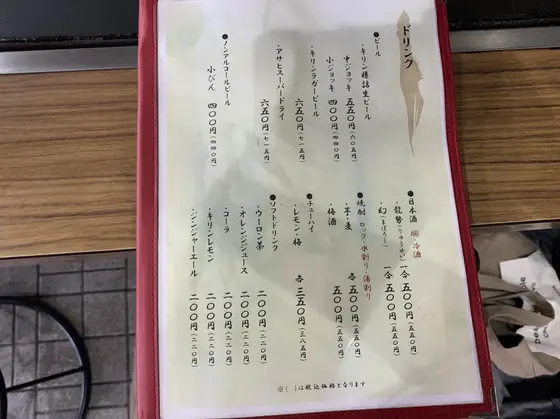 ドリンク
●ビール
・キリン樽詰生ビール
中ジョッキ 五五〇円(六〇五円)
小ジョッキ 四〇〇円(四四〇円)
・キリンラガービール
六五〇円(七一五円)
・アサヒスーパードライ
六五〇円(七一五円)
●ノンアルコールビール
小びん 四〇〇円(四四〇円)
●日本酒 燗・冷酒
・龍勢(りゅうせい) 一合 五〇〇円(五五〇円)
・幻(まぼろし) 一合 五〇〇円(五五〇円)
●焼酎 ロック・水割り・湯割り
・芋・麦 各 五〇〇円(五五〇円)
・梅酒 五〇〇円(五五〇円)
●チューハイ
・レモン・梅 各 三五〇円(三八五円)
●ソフトドリンク
・ウーロン茶 二〇〇円(二二〇円)
・オレンジジュース 二〇〇円(二二〇円)
・コーラ 二〇〇円(二二〇円)
・キリンレモン 二〇〇円(二二〇円)
・ジンジャーエール 二〇〇円(二二〇円)
※( )は税込価格となります